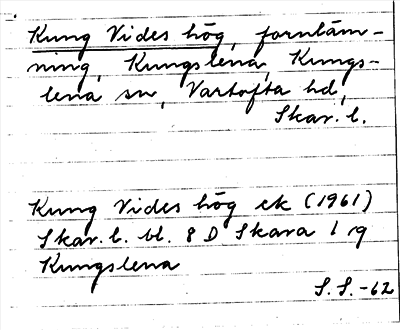 Kung Vides hög, fornläm-
ning, Kungslena, Kungs-
lena sn, Vartofta hd,
Skar. l.
Kung Vides hög ek (1961)
Skar. l. bl. 8 D Skara 1 g
Kungslena
S.S.-62